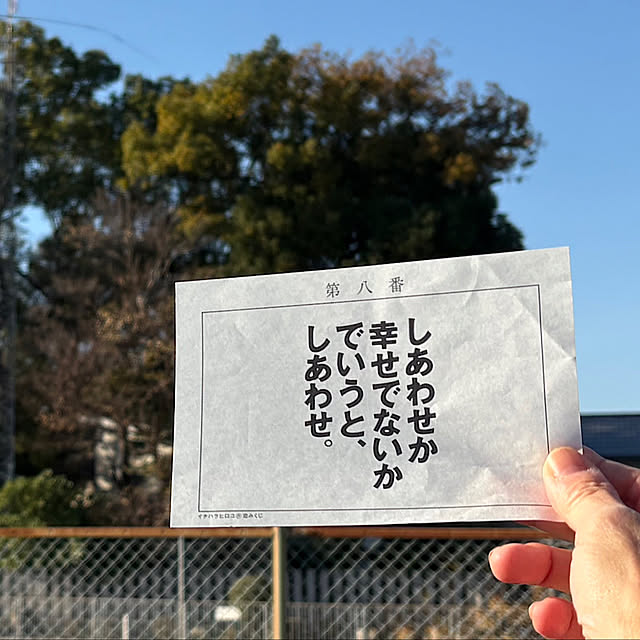 第八番
しあわせか
幸せでないか
でいうと、
しあわせ。
イチハラヒロコ㊟恋みくじ